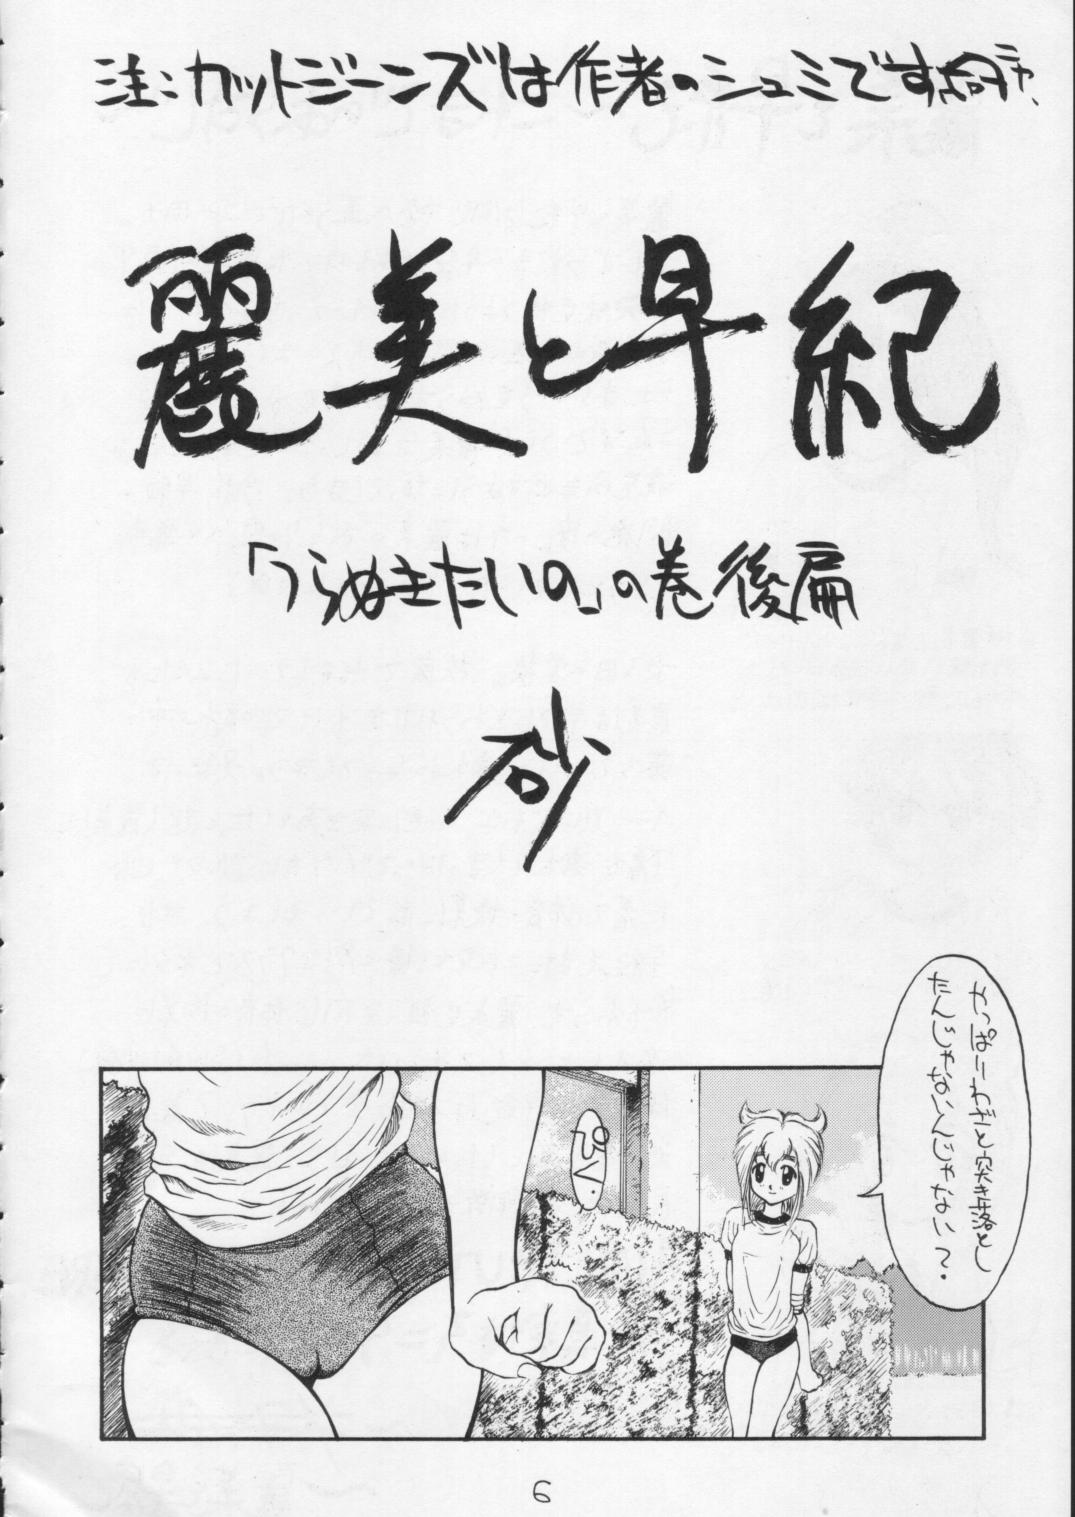 注:カットジーンズは作者のシュミです
麗美と早紀
「うらぬきたいの」の巻後扁
砂
やっぱりわざと突き落とし
たんじゃないんじゃない?
6